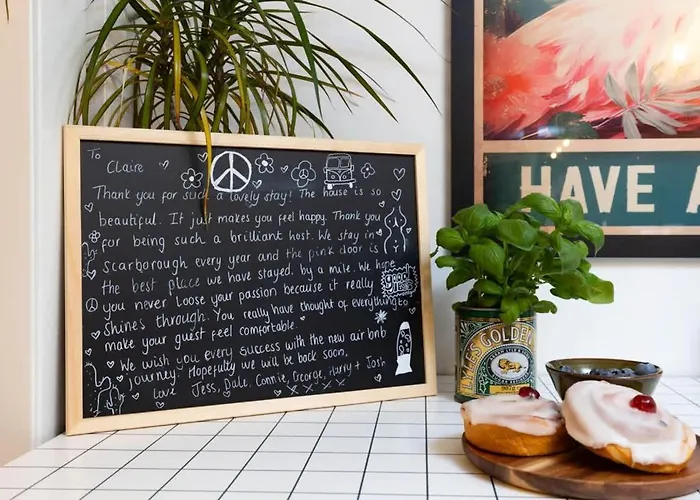 To
Claire
Thank you for such a lovely stay! The house is so
beautiful. It just makes you feel happy. Thank you
for being such a brilliant host. We stay in
scarborough every year and the pink door is
the best place we have stayed, by a mile. We hope
you never loose your passion because it really
shines through. You really have thought of everything to
make your guest feel comfortable.
We wish you every success with the new air bnb
journey. Hopefully we will be back soon,
Love Jess, Dale, Connie, George, Harry + Josh
x x x x x x
good
HAVE A
LYLE'S GOLDEN